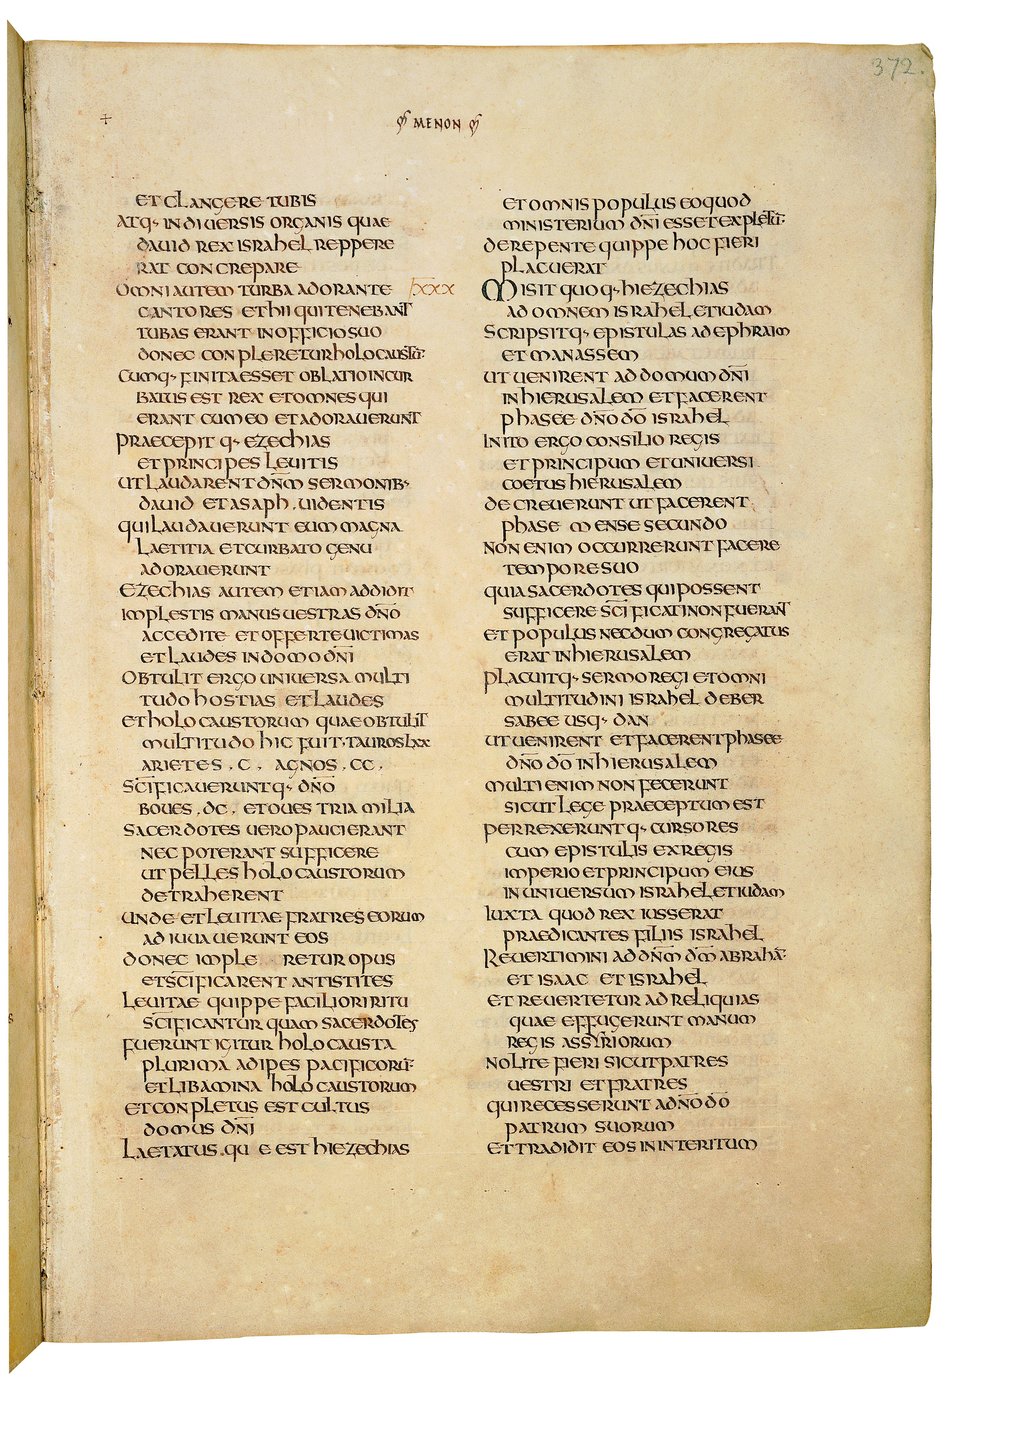 372.
+
MENON
ET CLANGERE TUBIS
ATQ· IN DIUERSIS ORGANIS QUAE
DAUID REX ISRAHEL REPPERE
RAT CONCREPARE
OMNI AUTEM TURBA ADORANTE
CANTORES ET HII QUI TENEBANT
TUBAS ERANT IN OFFICIO SUO
DONEC CONPLERETUR HOLOCAUSTŪ·
CUMQ· FINITA ESSET OBLATIO INCUR
BATUS EST REX ET OMNES QUI
ERANT CUM EO ET ADORAUERUNT
PRAECEPITQ· EZECHIAS
ET PRINCIPES LEUITIS
UT LAUDARENT DN̄M SERMONIB·
DAUID ET ASAPH·UIDENTIS
QUI LAUDAUERUNT EUM MAGNA
LAETITIA ET CURBATO GENU
ADORAUERUNT
EZECHIAS AUTEM ETIAM ADDIDIT
IMPLESTIS MANUS UESTRAS DN̄O
ACCEDITE ET OFFERTE UICTIMAS
ET LAUDES IN DOMO DN̄I
OBTULIT ERGO UNIUERSA MULTI
TUDO HOSTIAS ET LAUDES
ET HOLOCAUSTORUM QUAE OBTULIT
MULTITUDO HIC FUIT·TAUROS LXX
ARIETES·C· AGNOS·CC·
SC̄IFICAUERUNTQ· DN̄O
BOUES·DC· ET OUES TRIA MILIA
SACERDOTES UERO PAUCI ERANT
NEC POTERANT SUFFICERE
UT PELLES HOLOCAUSTORUM
DETRAHERENT
UNDE ET LEUITAE FRATRES EORUM
ADIUUAUERUNT EOS
DONEC IMPLE RETUR OPUS
ET SC̄IFICARENT ANTISTITES
LEUITAE QUIPPE FACILIORI RITU
SC̄IFICANTUR QUAM SACERDOTES
FUERUNT IGITUR HOLOCAUSTA
PLURIMA ADIPES PACIFICORŪ·
ET LIBAMINA HOLOCAUSTORUM
ET CONPLETUS EST CULTUS
DOMUS DN̄I
LAETATUS·QU E EST HIEZECHIAS
ET OMNIS POPULUS EO QUOD
MINISTERIUM DN̄I ESSET EXPLETŪ·
DE REPENTE QUIPPE HOC FIERI
PLACUERAT
LXXX
MISIT QUOQ· HIEZECHIAS
AD OMNEM ISRAHEL ET IUDAM
SCRIPSITQ· EPISTULAS AD EPHRAIM
ET MANASSEM
UT UENIRENT AD DOMUM DN̄I
IN HIERUSALEM ET FACERENT
PHASEE DN̄O DŌ ISRAHEL
INITO ERGO CONSILIO REGIS
ET PRINCIPUM ET UNIUERSI
COETUS HIERUSALEM
DECREUERUNT UT FACERENT
PHASE MENSE SECUNDO
NON ENIM OCCURRERUNT FACERE
TEMPORE SUO
QUIA SACERDOTES QUI POSSENT
SUFFICERE SC̄IFICATI NON FUERANT
ET POPULUS NECDUM CONGREGATUS
ERAT IN HIERUSALEM
PLACUITQ· SERMO REGI ET OMNI
MULTITUDINI ISRAHEL DE BER
SABEE USQ· DAN
UT UENIRENT ET FACERENT PHASEE
DN̄O DŌ IN HIERUSALEM
MULTI ENIM NON FECERUNT
SICUT LEGE PRAECEPTUM EST
PERREXERUNTQ· CURSORES
CUM EPISTULIS EX REGIS
IMPERIO ET PRINCIPUM EIUS
IN UNIUERSUM ISRAHEL ET IUDAM
IUXTA QUOD REX IUSSERAT
PRAEDICANTES FILIIS ISRAHEL
REUERTIMINI AD DN̄M DM̄ ABRAHĀ·
ET ISAAC ET ISRAHEL
ET REUERTETUR AD RELIQUIAS
QUAE EFFUGERUNT MANUM
REGIS ASSYRIORUM
NOLITE FIERI SICUT PATRES
UESTRI ET FRATRES
QUI RECESSERUNT A DN̄O DŌ
PATRUM SUORUM
ET TRADIDIT EOS IN INTERITUM